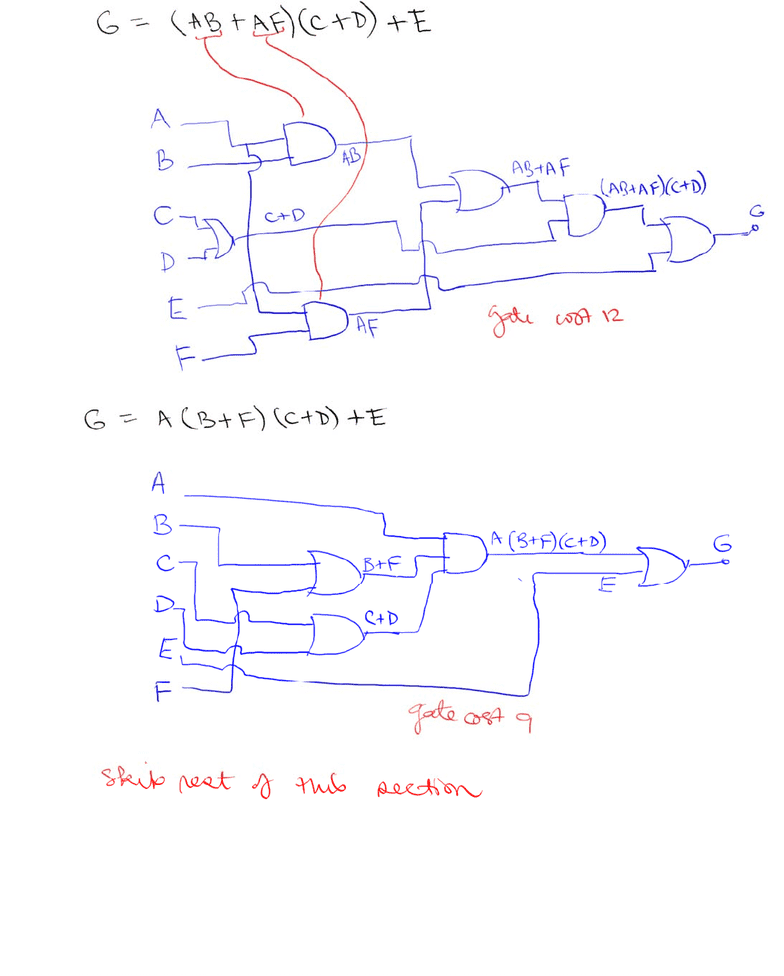 G = (AB + AF)(C+D) + E
A
B
AB
AB+AF
(AB+AF)(C+D)
C
C+D
G
D
E
F
AF
gate cost 12
G = A(B+F)(C+D)+E
A
B
A(B+F)(C+D)
G
C
B+F
E
D
C+D
E
F
gate cost 9
Skip rest of this section